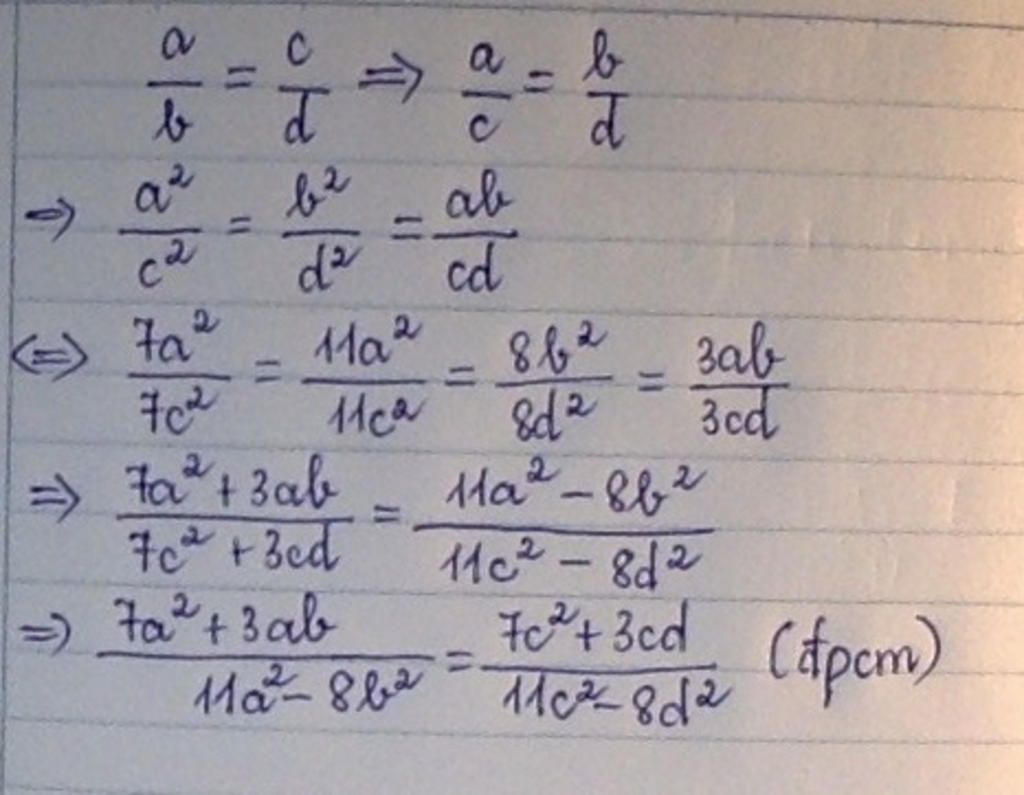 a/b = c/d ⇒ a/c = b/d
⇒ a²/c² = b²/d² = ab/cd
⇔ 7a²/7c² = 11a²/11c² = 8b²/8d² = 3ab/3cd
⇒ (7a² + 3ab)/(7c² + 3cd) = (11a² − 8b²)/(11c² − 8d²)
⇒ (7a² + 3ab)/(11a² − 8b²) = (7c² + 3cd)/(11c² − 8d²) (đpcm)